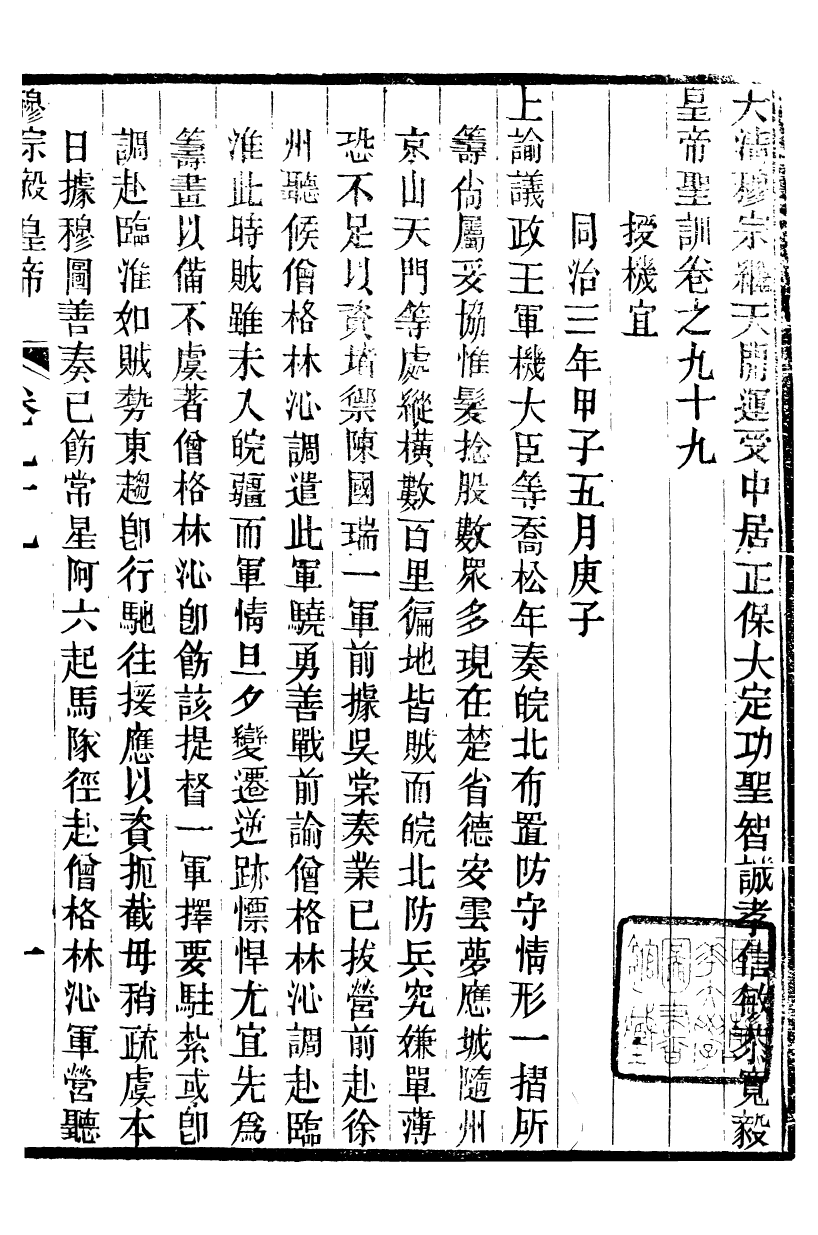 大清穆宗繼天開運受中居正保大定功聖智誠孝信敏恭寬毅
皇帝聖訓卷之九十九
授機宜
同治三年甲子五月庚子
上諭議政王軍機大臣等喬松年奏皖北布置防守情形一摺所
籌尚屬妥協惟髮捻股數眾多現在楚省德安雲夢應城隨州
京山天門等處縱橫數百里徧地皆賊而皖北防兵究嫌單薄
恐不足以資堵禦陳國瑞一軍前據吳棠奏業已拔營前赴徐
州聽候僧格林沁調遣此軍驍勇善戰前諭僧格林沁調赴臨
淮此時賊雖未入皖疆而軍情旦夕變遷逆跡慓悍尤宜先為
籌畫以備不虞著僧格林沁卽飭該提督一軍擇要駐紮或卽
調赴臨淮如賊勢東趨卽行馳往援應以資扼截毋稍疏虞本
日據穆圖善奏已飭常星阿六起馬隊徑赴僧格林沁軍營聽
穆宗毅皇帝 卷九十九 一